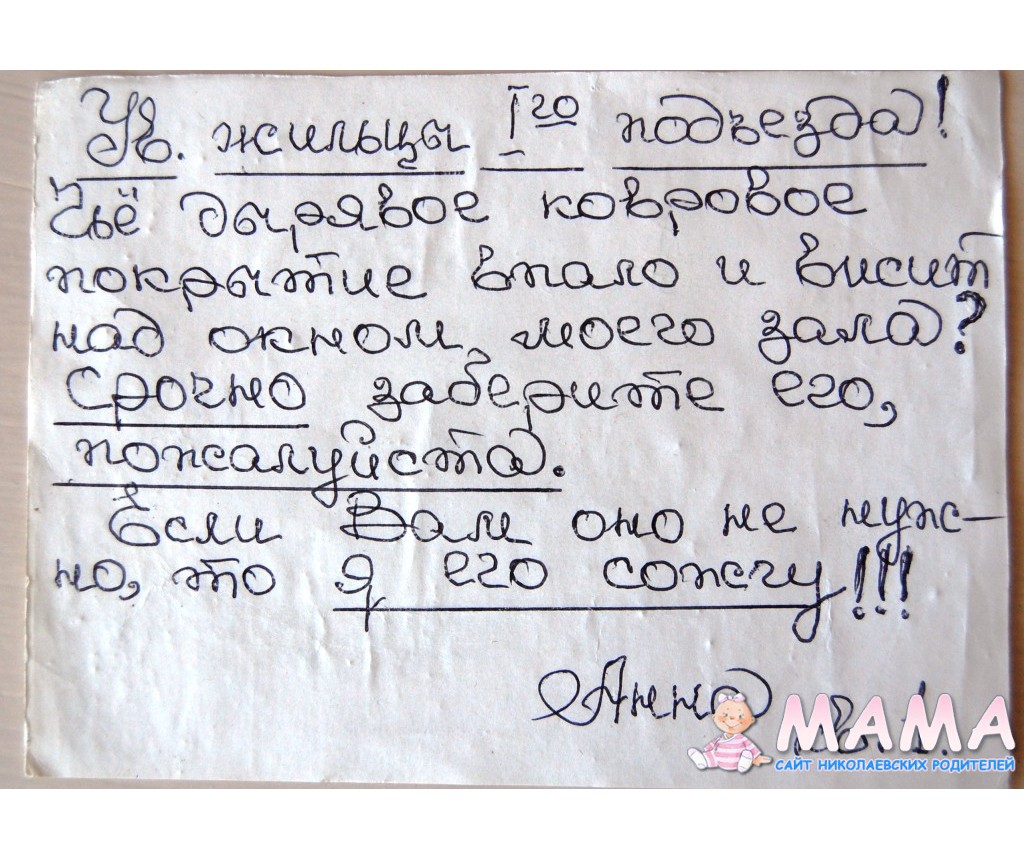 Ув. жильцы Iго подъезда!
Чьё дырявое ковровое
покрытие впало и висит
над окном моего зала?
Срочно заберите его,
пожалуйста.
Если Вам оно не нуж-
но, то я его сожгу!!!
Анна
МАМА
САЙТ НИКОЛАЕВСКИХ РОДИТЕЛЕЙ